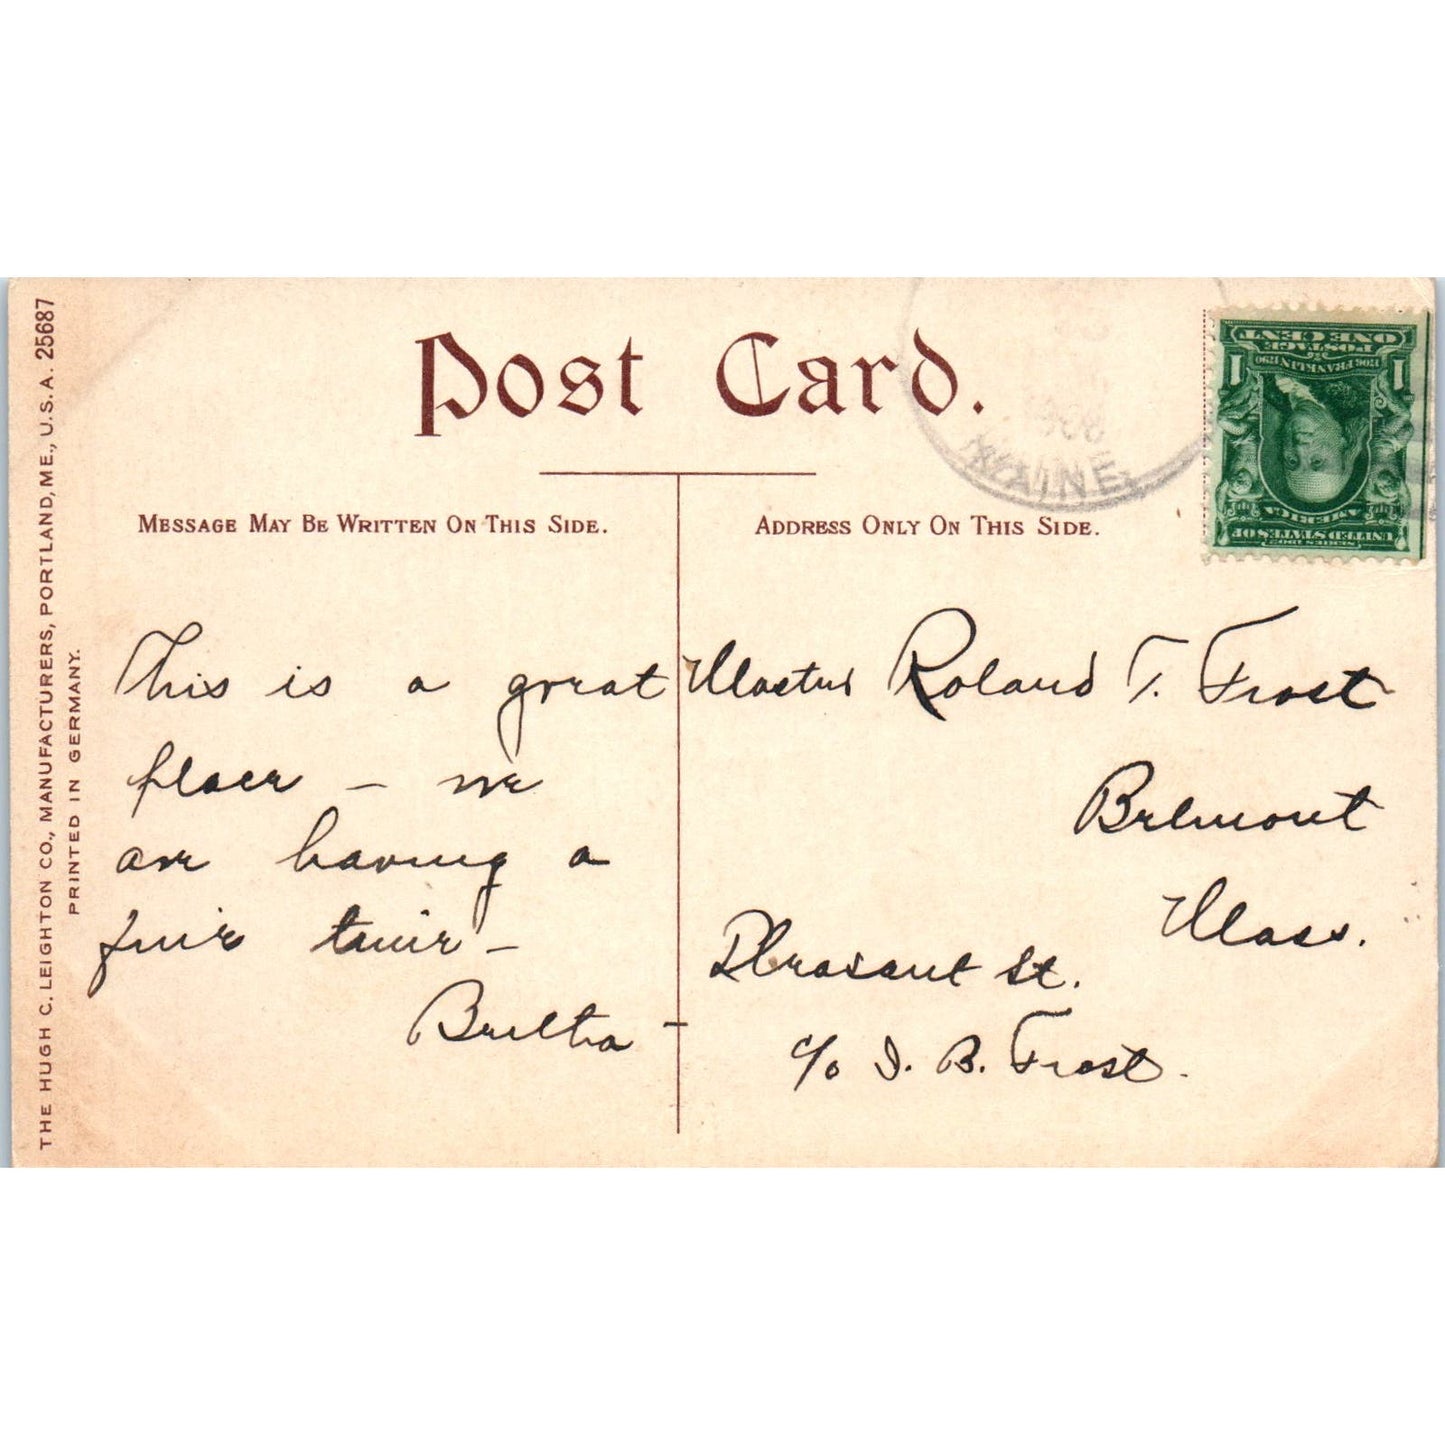 THE HUGH C. LEIGHTON CO., MANUFACTURERS, PORTLAND, ME., U.S.A. 25687
PRINTED IN GERMANY.
Post Card.
MESSAGE MAY BE WRITTEN ON THIS SIDE.
This is a great
place – we
are having a
fine time –
Bertha –
ADDRESS ONLY ON THIS SIDE.
MAINE
SERIES 1902
UNITED STATES OF
AMERICA
1706 FRANKLIN 1790
POSTAGE
1 ONE CENT 1
Master Roland T. Frost
Belmont
Mass.
Pleasant St.
c/o I. B. Frost.